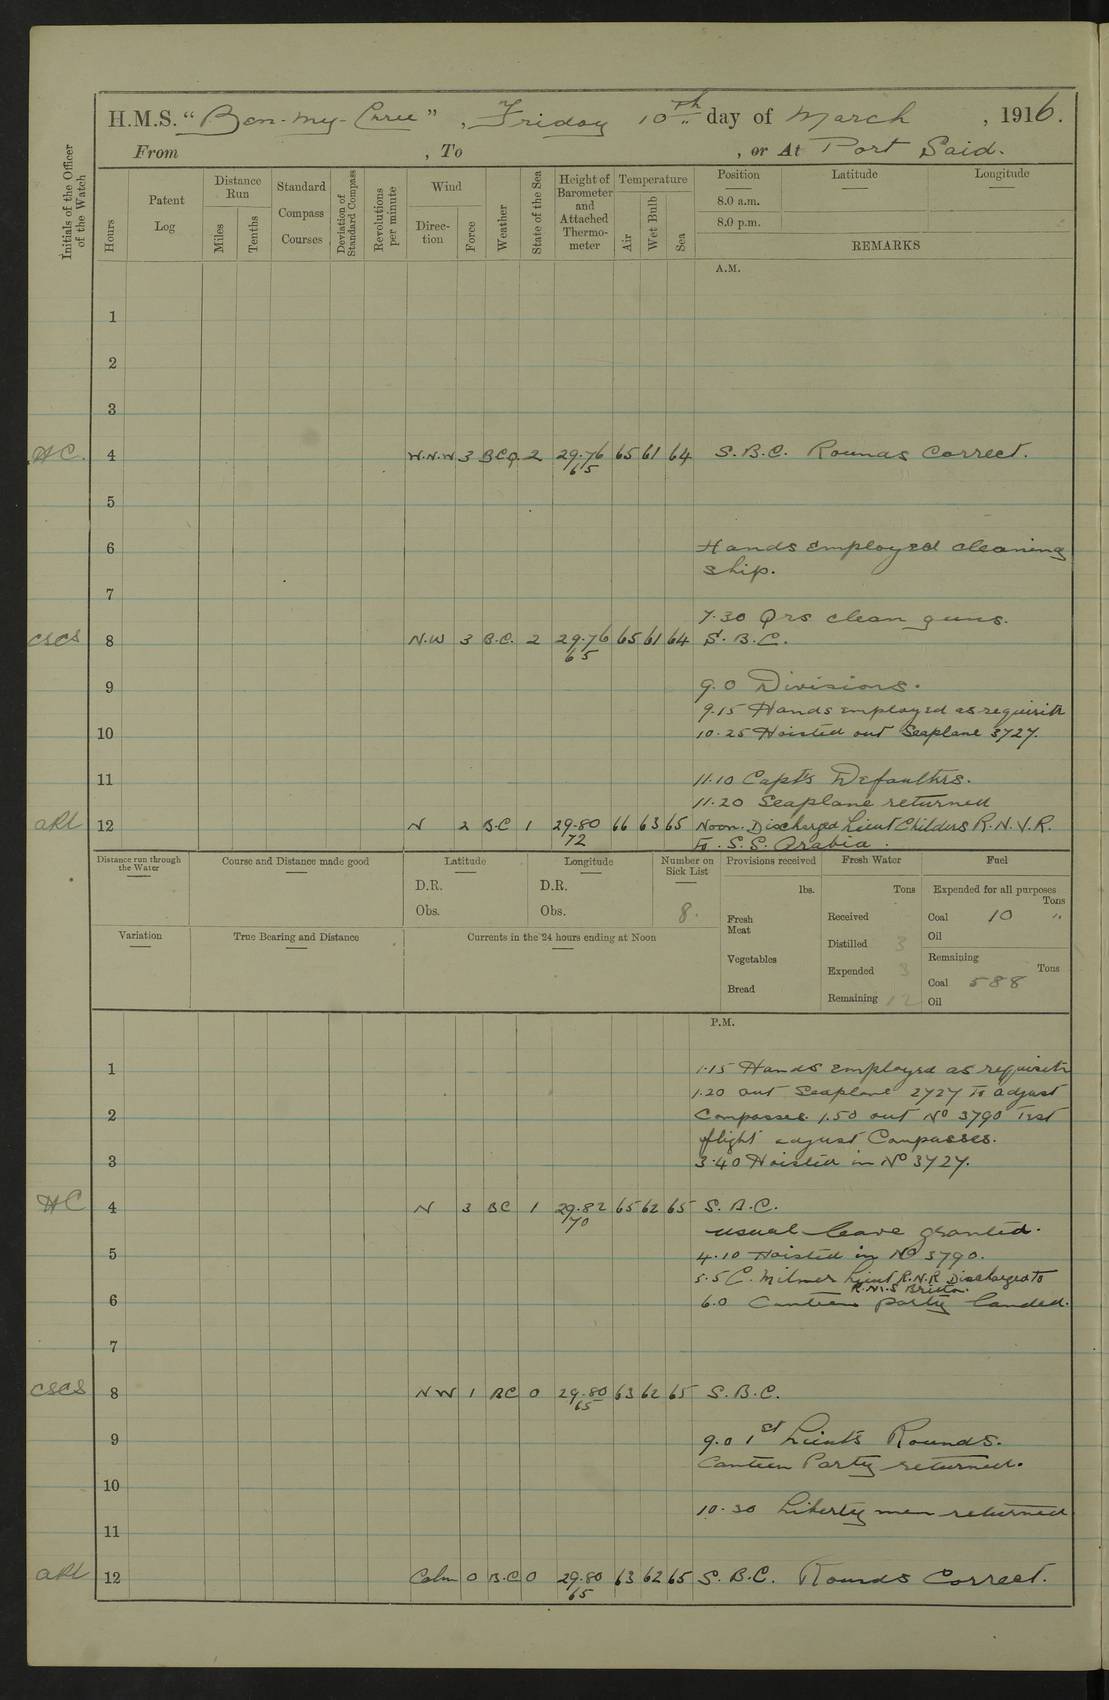 H.M.S. "Ben-my-Chree", Friday 10th day of March, 1916.
From , To , or At Port Said.
Initials of the Officer of the Watch
Hours
Patent Log
Distance Run
Miles
Tenths
Standard Compass Courses
Deviation of Standard Compass
Revolutions per minute
Wind
Direction
Force
Weather
State of the Sea
Height of Barometer and Attached Thermometer
Temperature
Air
Wet Bulb
Sea
Position
Latitude
Longitude
8.0 a.m.
8.0 p.m.
REMARKS
A.M.
1
2
3
HC. 4 W.N.W 3 BCQ 2 29.76 65 61 64 S.B.C. Rounds Correct.
65
5
6 Hands employed cleaning
ship.
7
7.30 Qrs clean guns.
CSCS 8 N.W 3 B.C. 2 29.76 65 61 64 S.B.C.
65
9 9.0 Divisions.
9.15 Hands employed as requisite
10 10.25 Hoisted out Seaplane 3727.
11 11.10 Capt's Defaulters.
11.20 Seaplane returned
12 N 2 B.C 1 29.80 66 63 65 Noon. Discharged Lieut Childers R.N.V.R.
72 To. S.S. Arabia.
Distance run through the Water
Course and Distance made good
Latitude
D.R.
Obs.
Longitude
D.R.
Obs.
Number on Sick List
8.
Provisions received
lbs.
Fresh Meat
Vegetables
Bread
Fresh Water
Tons
Received
Distilled 3
Expended 3
Remaining 12
Fuel
Expended for all purposes
Tons
Coal 10 "
Oil
Remaining
Tons
Coal 588
Oil
Variation
True Bearing and Distance
Currents in the 24 hours ending at Noon
P.M.
1 1.15 Hands employed as requisite
1.20 out Seaplane 2727 To adjust
2 Compasses. 1.50 out No 3790 Test
flight adjust Compasses.
3 3.40 Hoisted in No 3727.
HC 4 N 3 BC 1 29.82 65 62 65 S.B.C.
70 usual leave granted.
5 4.10 Hoisted in No 3790.
5.5 C. Milner Lieut R.N.R Discharged To
R.M.S Briton.
6 6.0 Canteen party landed.
7
CSCS 8 NW 1 BC 0 29.80 63 62 65 S.B.C.
65
9 9.0 1st Lieut's Rounds.
Canteen Party returned.
10
10.30 Liberty men returned
11
12 Calm 0 B.C 0 29.80 63 62 65 S.B.C. Rounds Correct.
65